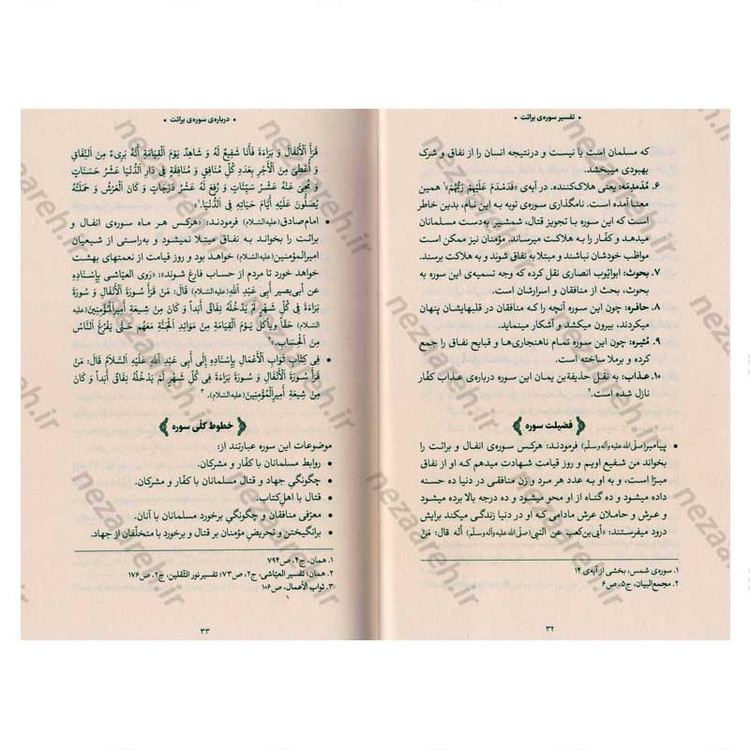 • تفسیر سوره‌ی برائت •
که مسلمان است یا نیست و درنتیجه انسان را از نفاق و شرک
بهبودی میبخشد.
۶. مُدَمدِمَه: یعنی هلاک‌کننده. در آیه‌ی «فَدَمْدَمَ عَلَيْهِمْ رَبُّهُمْ»۱ همین
معنا آمده است. نامگذاری سوره‌ی توبه به این نام، بدین خاطر
است که این سوره با تجویز قتال، شمشیر به‌دست مسلمانان
میدهد و کفّار را به هلاکت میرساند. مؤمنان نیز ممکن است
مواظب خودشان نباشند و مبتلا به نفاق شوند و به هلاکت برسند.
۷. بحوث: ابوایّوب انصاری نقل کرده که وجه تسمیه‌ی این سوره به
بحوث، بحث از منافقان و اسرارشان است.
۸. حافره: چون این سوره آنچه را که منافقان در قلبهایشان پنهان
میکردند، بیرون میکشد و آشکار مینماید.
۹. مُثیره: چون این سوره تمام ناهنجاری‌ها و قبایح نفاق را جمع
کرده و برملا ساخته است.
۱۰. عذاب: به نقل حذیفة‌بن یمان این سوره درباره‌ی عذاب کفّار
نازل شده است.۲
فضیلت سوره
• پیامبر(صلّی‌الله‌علیه‌وآله‌وسلّم) فرمودند: هرکس سوره‌ی انفال و برائت را
بخواند من شفیع اویم و روز قیامت شهادت میدهم که او از نفاق
مبرّا است، و به او به عدد هر مرد و زن منافقی در دنیا ده حسنه
داده میشود و ده گناه از او محو میشود و ده درجه بالا برده میشود
و عرش و حاملان عرش مادامی که او در دنیا زندگی میکند برایش
درود میفرستند؛ «أبی‌بن‌کعب عن النبی(صلّی‌الله‌علیه‌وآله‌وسلّم) أنّه قال: مَن
۱. سوره‌ی شمس، بخشی از آیه‌ی ۱۴
۲. مجمع‌البیان، ج۵، ص۶
۳۲
• درباره‌ی سوره‌ی برائت •
قَرَأَ الْأَنْفَالَ وَ بَرَاءَةَ فَأَنَا شَفِيعٌ لَهُ وَ شَاهِدٌ يَوْمَ الْقِيَامَةِ أَنَّهُ بَرِيءٌ مِنَ النِّفَاقِ
وَ أُعْطِيَ مِنَ الْأَجْرِ بِعَدَدِ كُلِّ مُنَافِقٍ وَ مُنَافِقَةٍ فِي دَارِ الدُّنْيَا عَشْرُ حَسَنَاتٍ
وَ مُحِيَ عَنْهُ عَشْرُ سَيِّئَاتٍ وَ رُفِعَ لَهُ عَشْرُ دَرَجَاتٍ وَ كَانَ الْعَرْشُ وَ حَمَلَتُهُ
يُصَلُّونَ عَلَيْهِ أَيَّامَ حَيَاتِهِ فِي الدُّنْيَا.۱
• امام‌صادق(علیه‌السّلام) فرمودند: «هرکس هر ماه سوره‌ی انفال و
برائت را بخواند به نفاق مبتلا نمیشود و به‌راستی از شیعیان
امیرالمؤمنین(علیه‌السّلام) خواهد بود و روز قیامت از نعمتهای بهشت
خواهد خورد تا مردم از حساب فارغ شوند»؛ «رَوَی العیّاشی بِإِسنادِهِ
عن أبی‌بصیر أبی عَبدِ اللهِ(علیه‌السّلام) قَالَ: مَن قَرَأَ الأَنفَالَ وَ سُورَةَ
بَرَاءَةَ فِي كُلِّ شَهرٍ لَم يَدخُلهُ نِفَاقٌ أَبَداً وَ كَانَ مِن شِيعَةِ أَمِيرِالمُؤمِنِين(علیه
السّلام) حَقّاً ويأكُل يَومَ القِيَامَةِ مِن مَوَائِدِ الجَنَّةِ مَعَهُم حَتّى يَفرُغَ النّاسُ
مِنَ الحِسَابِ.»۲
• فِي كِتَابِ ثَوابِ الأَعمَالِ بِإِسنَادِهِ إِلَى أَبِي عَبدِ اللهِ عَلَيهِ السَّلَامُ قَالَ: مَن
قَرَأَ سُورَةَ الأَنفَالِ وَ سُورَةَ بَرَاءَةَ فِي كُلِّ شَهرٍ لَم يَدخُلهُ نِفَاقٌ أَبَداً وَ كَانَ
مِن شِيعَةِ أَمِيرِالمُؤمِنِينَ(علیه‌السّلام).۳
خطوط کلّی سوره
موضوعات این سوره عبارتند از:
• روابط مسلمانان با کفّار و مشرکان.
• چگونگیِ جهاد و قتال مسلمانان با کفّار و مشرکان.
• قتال با اهل‌کتاب.
• معرّفی منافقان و چگونگیِ برخورد مسلمانان با آنان.
• برانگیختن و تحریض مؤمنان بر قتال و برخورد با متخلّفان از جهاد.
۱. همان، ج۴، ص۷۹۴
۲. همان؛ تفسیر العیّاشی، ج۲، ص۷۳؛ تفسیر نور الثّقلین، ج۲، ص۱۷۶
۳. ثواب‌الأعمال، ص۱۰۶
۳۳
nezaareh.ir